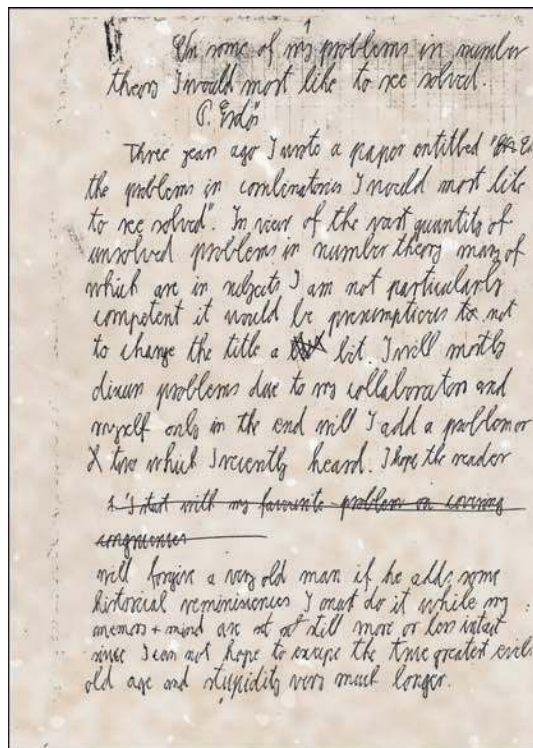 1
On some of my problems in number
theory I would most like to see solved.
P. Erdős
Three year ago I wrote a paper entitled "
the problems in combinatorics I would most like
to see solved". In view of the vast quantity of
unsolved problems in number theory many of
which are in subjects I am not particularly
competent it would be presumptious to not
to change the title a bit. I will mostly
discuss problems due to my collaborators and
myself only in the end will I add a problem or
two which I recently heard. I hope the reader
I start with my favourite problem on covering
congruences
will forgive a very old man if he adds some
historical reminiscences I must do it while my
memory + mind are still more or less intact
since I can not hope to escape the greatest evils
old age and stupidity very much longer.